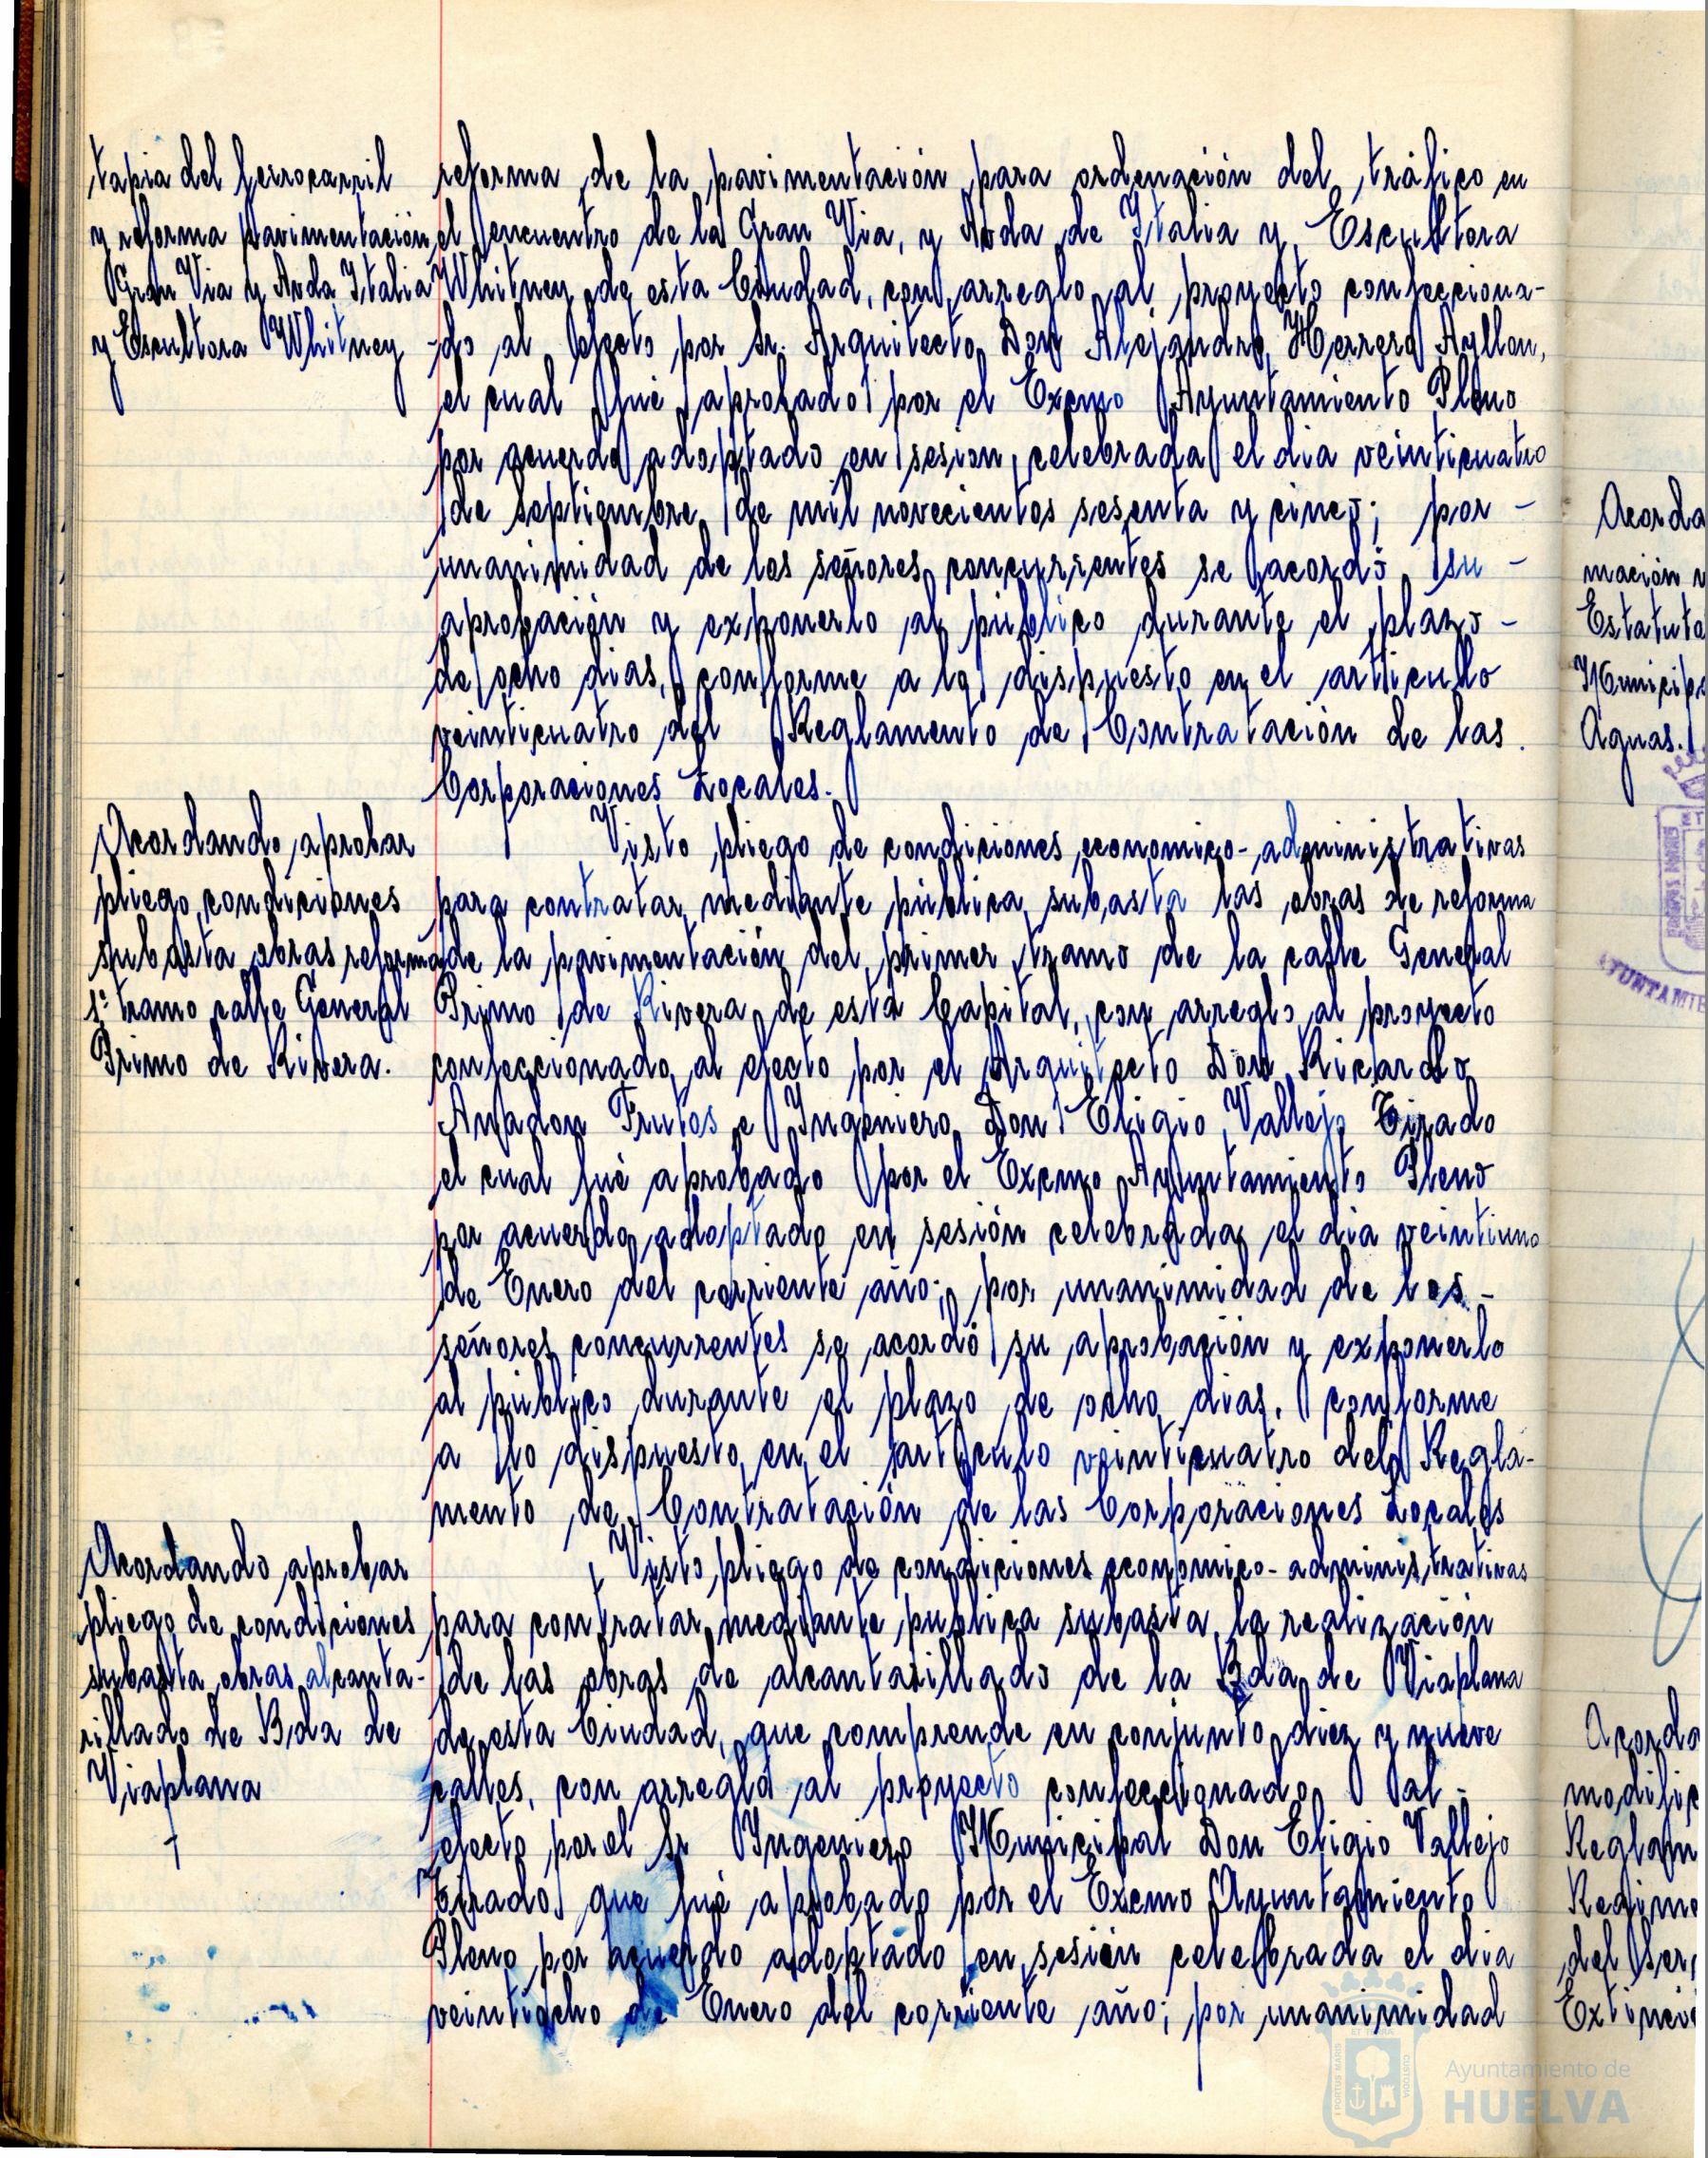 tapia del ferrocarril
y reforma pavimentación
Gran Via y Avda Italia
y Escultora Whitney
reforma de la pavimentación para ordenación del tráfico en
el encuentro de la Gran Via, y Avda de Italia y Escultora
Whitney de esta Ciudad, con arreglo al proyecto confecciona-
do al efecto por Sr. Arquitecto Don Alejandro Herrero Ayllon,
el cual fué aprobado por el Excmo Ayuntamiento Pleno
por acuerdo adoptado en sesion celebrada el dia veinticuatro
de Septiembre de mil novecientos sesenta y cinco; por -
unanimidad de los señores concurrentes se acordó su -
aprobación y exponerlo al público durante el plazo -
de ocho dias, conforme a lo dispuesto en el articulo
veinticuatro del Reglamento de Contratación de las
Corporaciones Locales.
Acordando aprobar
pliego condiciones
subasta obras reforma
1º tramo calle General
Primo de Rivera.
Visto pliego de condiciones economico-administrativas
para contratar mediante pública subasta las obras de reforma
de la pavimentación del primer tramo de la calle General
Primo de Rivera de esta Capital, con arreglo al proyecto
confeccionado al efecto por el Arquitecto Don Ricardo
Anadon Frutos e Ingeniero Don Eligio Vallejo Tirado
el cual fué aprobado por el Excmo Ayuntamiento Pleno
por acuerdo adoptado en sesión celebrada el dia veintiuno
de Enero del corriente año; por unanimidad de los -
señores concurrentes se acordó su aprobación y exponerlo
al publico durante el plazo de ocho dias, conforme
a lo dispuesto en el articulo veinticuatro del Regla-
mento de Contratación de las Corporaciones Locales
Acordando aprobar
pliego de condiciones
subasta obras alcanta-
rillado de Bda de
Viaplana
Visto pliego de condiciones economico-administrativas
para contratar mediante publica subasta la realización
de las obras de alcantarillado de la Bda de Viaplana
de esta Ciudad, que comprende en conjunto diez y nueve
calles, con arreglo al proyecto confeccionado al -
efecto por el Sr Ingeniero Municipal Don Eligio Vallejo
Tirado que fué aprobado por el Excmo Ayuntamiento
Pleno por acuerdo adoptado en sesión celebrada el dia
veintiocho de Enero del corriente año; por unanimidad
Acorda
mación
Estatuto
Municip
Aguas.
AYUNTAMIE
Acorda
modific
Reglam
Regime
del Ser
Extinci
Ayuntamiento de
HUELVA